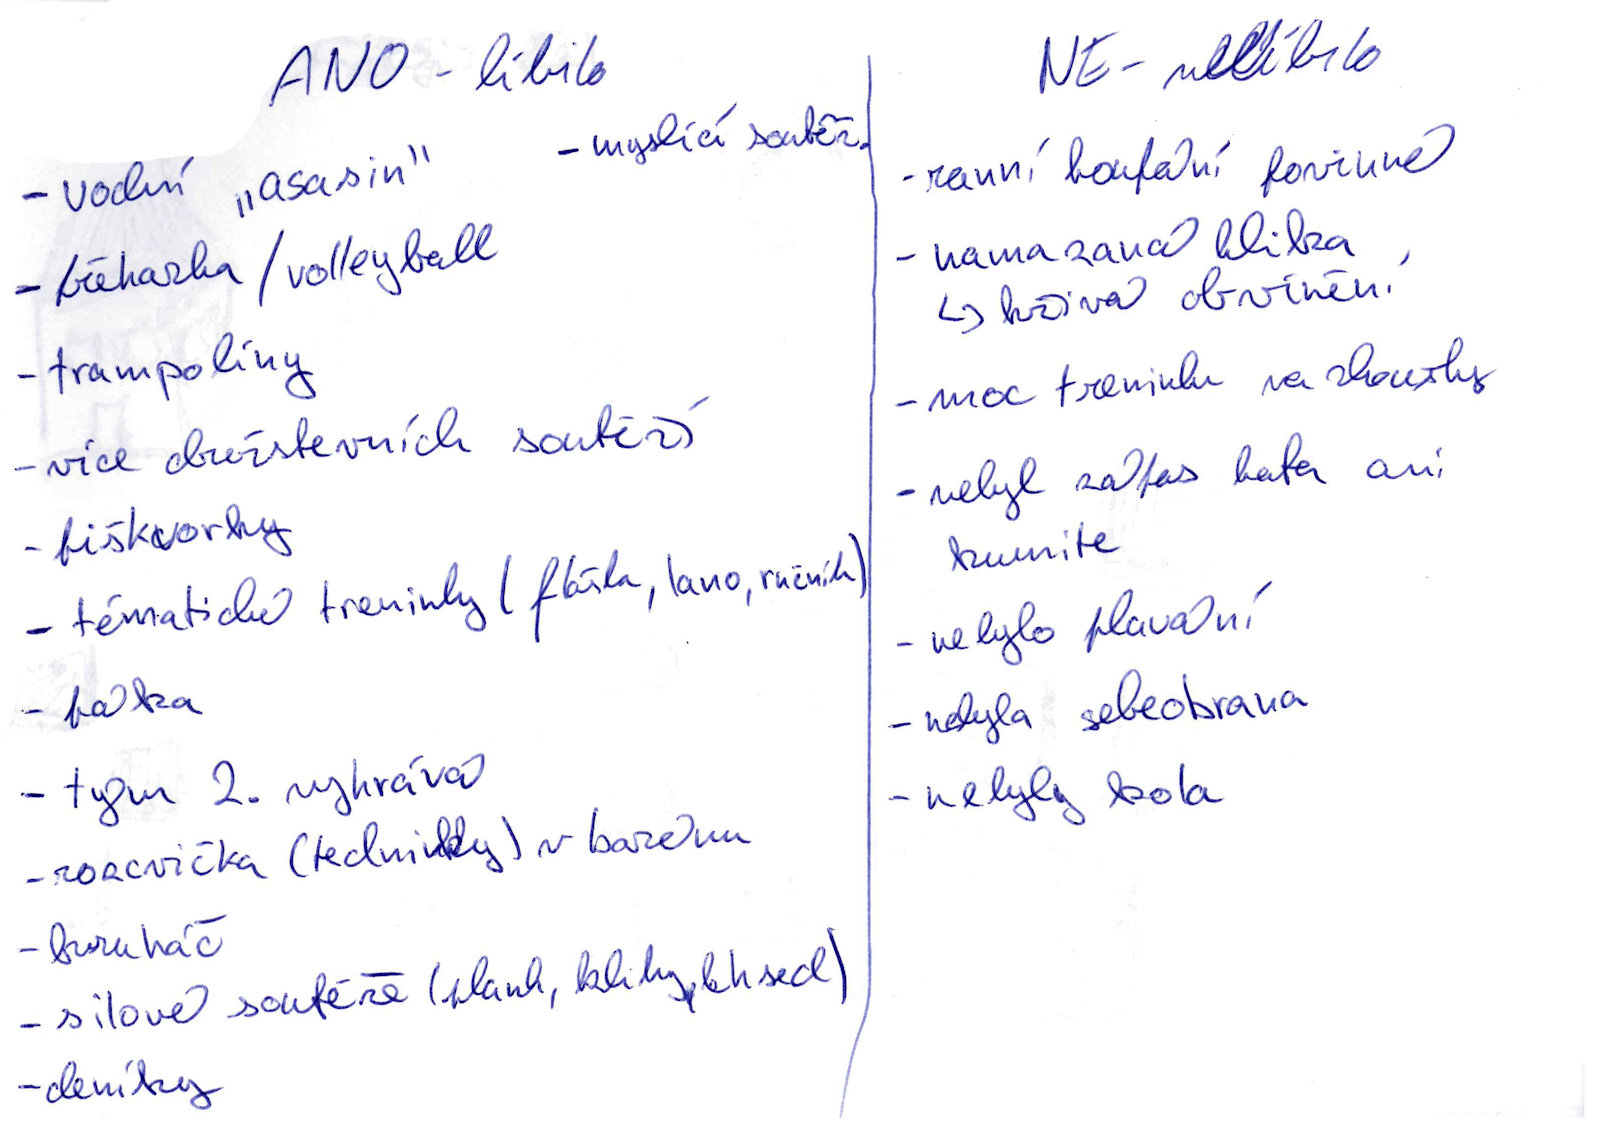 ANO - líbilo
- myslící soutěž.
- vodní „asasin"
- přeházka / volleyball
- trampolíny
- více družstevních soutěží
- piškvorky
- tématické treninky ( flaška, lano, ručník)
- páka
- tým 2. vyhrává
- rozcvička (techniky) v bazénu
- kruháč
- silové soutěže (plank, kliky, leh sed)
- deníky
NE - nelíbilo
- ranní koupání povinně
- namazaná klika
↳ křivá obvinění
- moc treninku na zkoušky
- nebyl zápas kata ani
kumite
- nebylo plavání
- nebyla sebeobrana
- nebyly kola